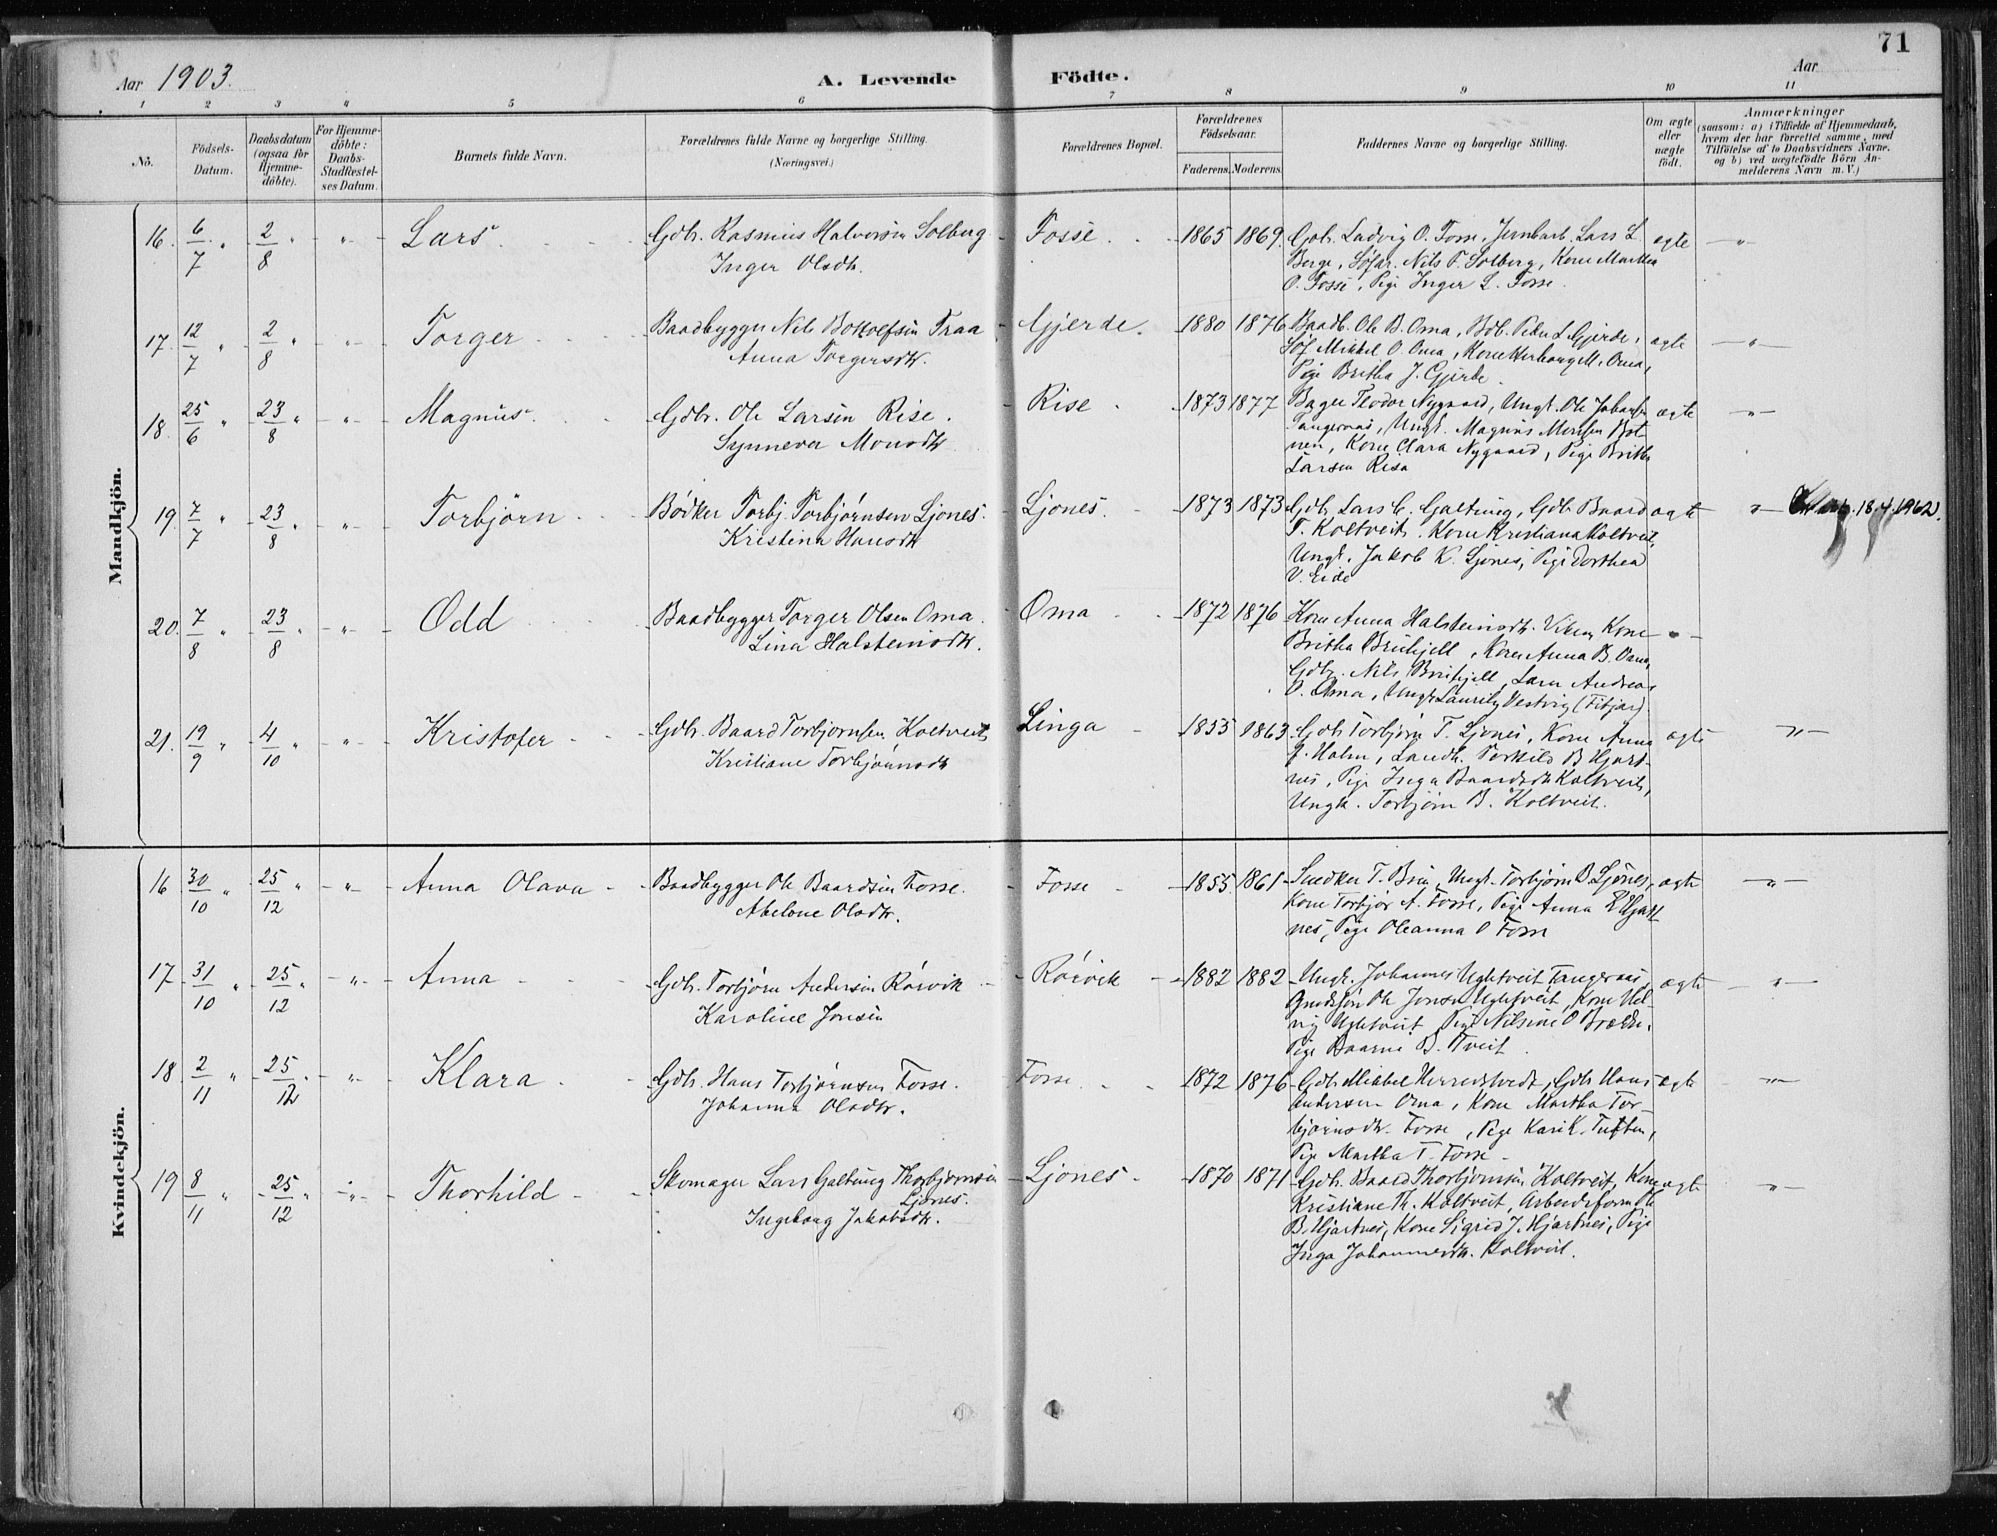 71
Aar 1903. A. Levende Födte. Aar
1 2 3 4 5 6 7 8 9 10 11
No.
Födsels-Datum.
Daabsdatum (ogsaa for Hjemme-döbte).
For Hjemme-döbte: Daabs-Stadfæstel-ses Datum.
Barnets fulde Navn.
Forældrenes fulde Navne og borgerlige Stilling.
(Næringsvei.)
Forældrenes Bopæl.
Forældrenes Födselsaar.
Faderens. Moderens.
Faddernes Navne og borgerlige Stilling.
Om ægte eller uægte födt.
Anmærkninger
(saasom: a) i Tilfælde af Hjemmedaab,
hvem der har forrettet samme, med
Tilföielse af to Daabsvidners Navne.
og b) ved uægtefödte Börn An-
melderens Navn m. V.)
Mandkjön.
16. 6/7 " 2/8 " " Lars Gdbr. Rasmus Halvorsen Solberg Fosse. 1865 1869. Gbr. Ludvig O. Fosse, Jernbarb. Lars L. ægte "
Inger Olsdtr. Berge, Söfar. Nils T. Solberg, Kone Martha
O. Fosse, Pige Inger L. Fosse.
17. 12/7 " 2/8 " " Torger Baadbygger Nils Botolfsen Traa Gjerde. 1880 1876 Baadb. Ole B. Oma, Bdb. Peder L. Gjerde, ægte "
Anna Torgersdtr. Söf Mikkel O. Oma, Kone Herborg M. Oma,
Pige Britha J. Gjerde.
18. 25/6 " 23/8 " " Magnus Gdbr. Ole Larsen Rise. Rise 1873 1877 Bager Teodor Nygaard, Ungk. Ole Johansen ægte "
Synneva Monsdtr. Tangeraas, Ungk. Magnus Monsen Bot-
nen, Kone Clara Nygaard, Pige Britha
Larsen Risa
19. 7/7 " 23/8 " " Torbjörn Bödker Torbj. Torbjörnsen Ljones. Ljones. 1873 1873 Gdb. Lars C. Galtung, Gdb. Baard ægte " 18.4.1962.
Kristena Hansdtr. T. Koltveit, Kone Kristiana Koltveit,
Ungk. Jakob K. Ljones, Pige Dorthea
V. Eide
20. 7/8 " 23/8 " " Odd Baadbygger Torger Olsen Oma. Oma 1872 1876 Kone Anna Halsteinsdtr. Kone "
Lina Halsteinsdtr. Britha , Kone Anna B. Oma,
Gdbr. Nils , Lars Andreas
O. Oma, Ungk. Lauritz Vestvig (Fitjar).
21. 19/9 " 4/10 " " Kristofer Gdbr. Baard Torbjörnsen Koltveit Linga 1855 1863 Gdb. Torbjörn T. Ljones, Kone Anna ægte "
Kristiane Torbjörnsdtr. J. Holm, Landh. Torkild B. Hjart-
nes, Pige Inga Baardsdtr Koltveit,
Ungk. Torbjörn B. Koltveit.
Kvindekjön.
16 30/10 " 25/12 " " Anna Olava Baadbygger Ole Baardsen Fosse. Fosse 1855 1861 Snedker T. Bru, Ungk. Torbjörn B. Ljones, ægte "
Abelone Olsdtr. Kone Torbjör A. Fosse, Pige Anna E Hjart
nes, Pige Oleanna O Fosse
17 31/10 " 25/12 " " Anna Gdb. Torbjörn Andersen Röivik Röivik 1882 1882 Ungk. Johannes Ughtveit Tangeraas, ægte "
Karoline Jonsen Gaardsfor Ole Jonsen Ughtveit, Kone Hel-
vig Ughtveit, Pige Nilsine O Brække,
Pige Baarni B. Tveit.
18 2/11 " 25/12 " " Klara Gdb. Hans Torbjörnsen Fosse. Fosse. 1872 1876 Gdb. Mikkel Herredstvedt, Gdb. Hans ægte "
Johanna Olsdtr. Andersen Oma, Kone Martha Tor-
björnsdtr. Fosse, Pige Kari K. Tuften,
Pige Martha T. Fosse
19 8/11 " 25/12 " " Thorhild Skomager Lars Galtung Thorbjörnsen Ljones 1870 1871 Gdb. Baard Thorbjörnsen Koltveit, Kone ægte "
Ljones. Kristiane Th. Koltveit, Arbeidsform. Ole
Ingeborg Jakobsdtr. B. Hjartnes, Kone Sigrid J. Hjartnes, Pige
Inga Johannesdtr. Koltveit.